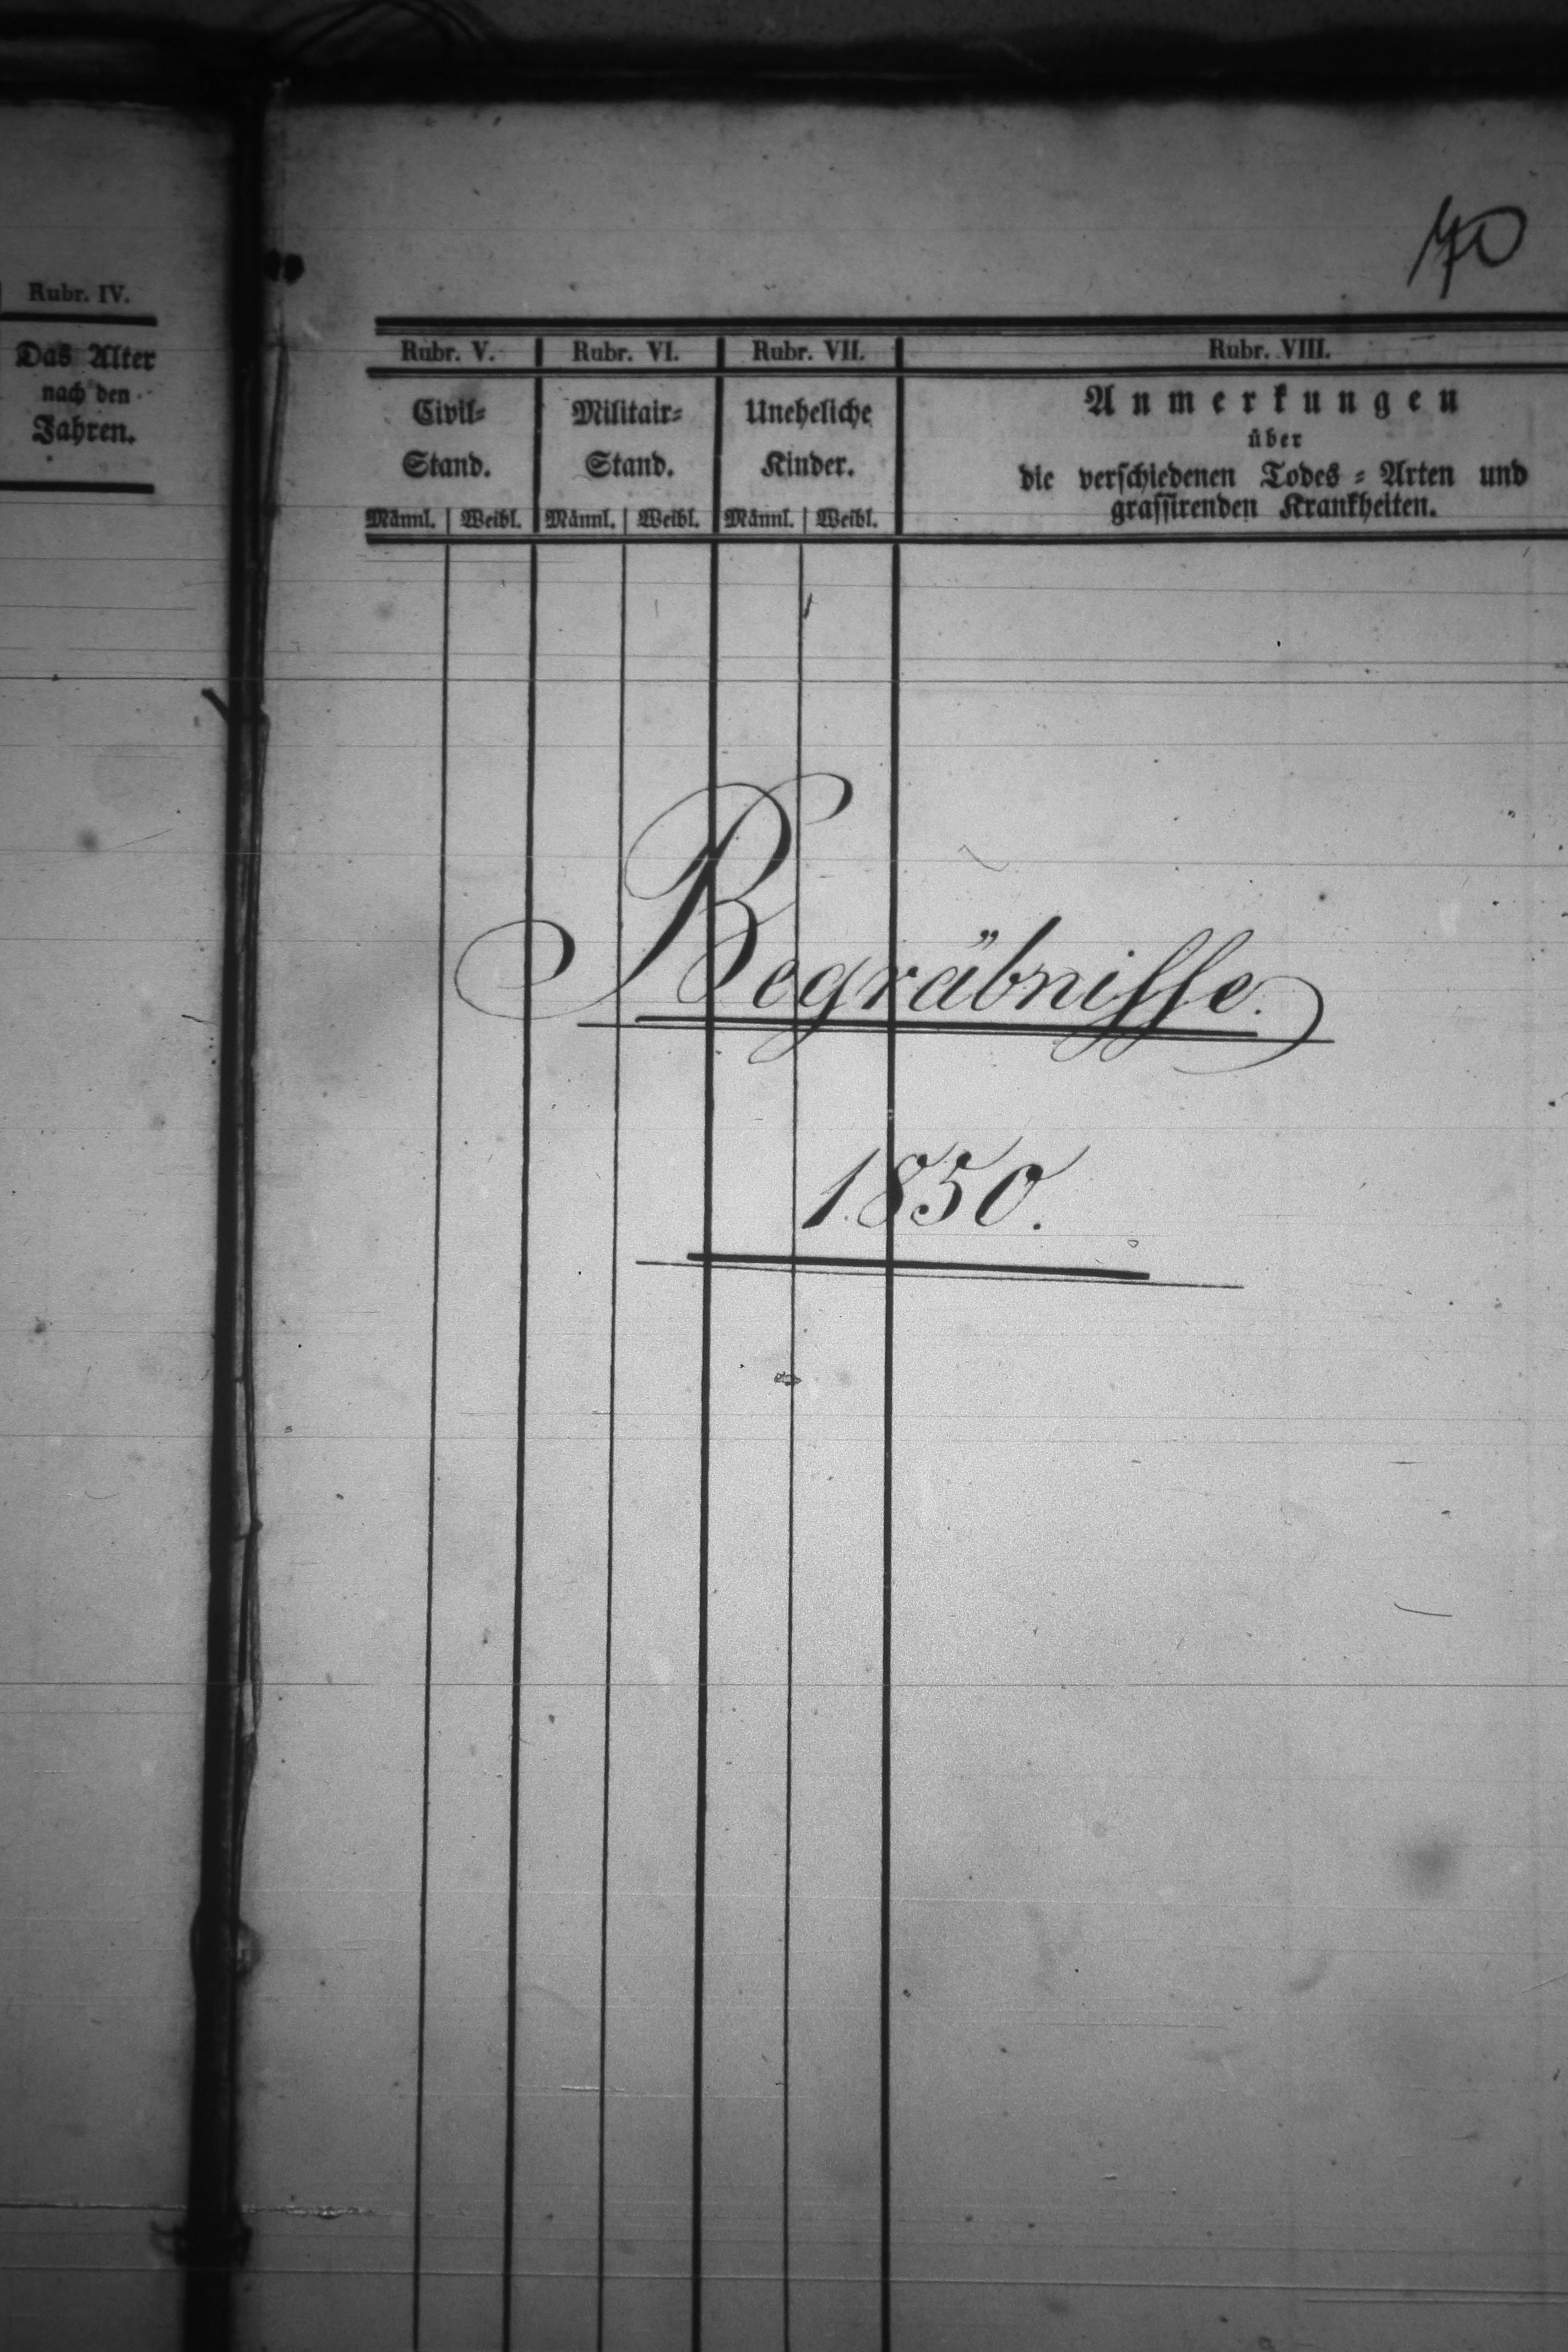 Rubr. IV.
Das Alter
nach den
Jahren.
70
Rubr. V. Rubr. VI. Rubr. VII. Rubr. VIII.
Civil=
Stand.
Militair=
Stand.
Uneheliche
Kinder.
Anmerkungen
über
die verschiedenen Todes = Arten und
grassirenden Krankheiten.
Männl. Weibl. Männl. Weibl. Männl. Weibl.
Begräbnisse.
1850.